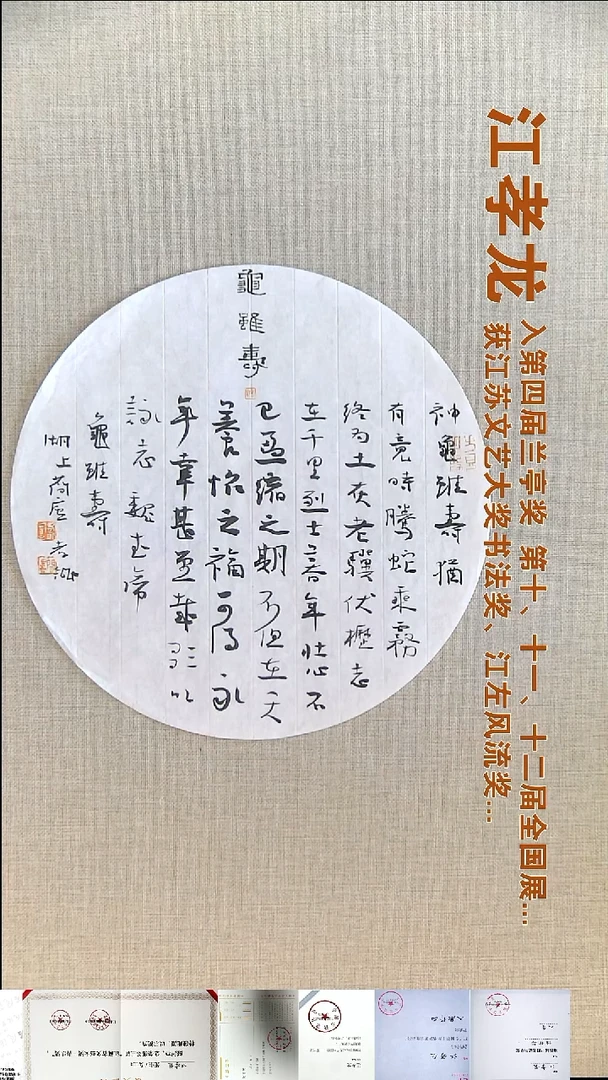 江孝龙
入第四届兰亭奖 第十、十一、十二届全国展...
获江苏文艺大奖书法奖、江左风流奖...
龜雖壽
神龜雖壽猶
有竟時騰蛇乘霧
终为土灰老驥伏櫪志
在千里烈士暮年壯心不
已盈缩之期不但在天
養怡之福可得永
年幸甚至哉歌以
詠志魏武帝
龜雖壽
湖上